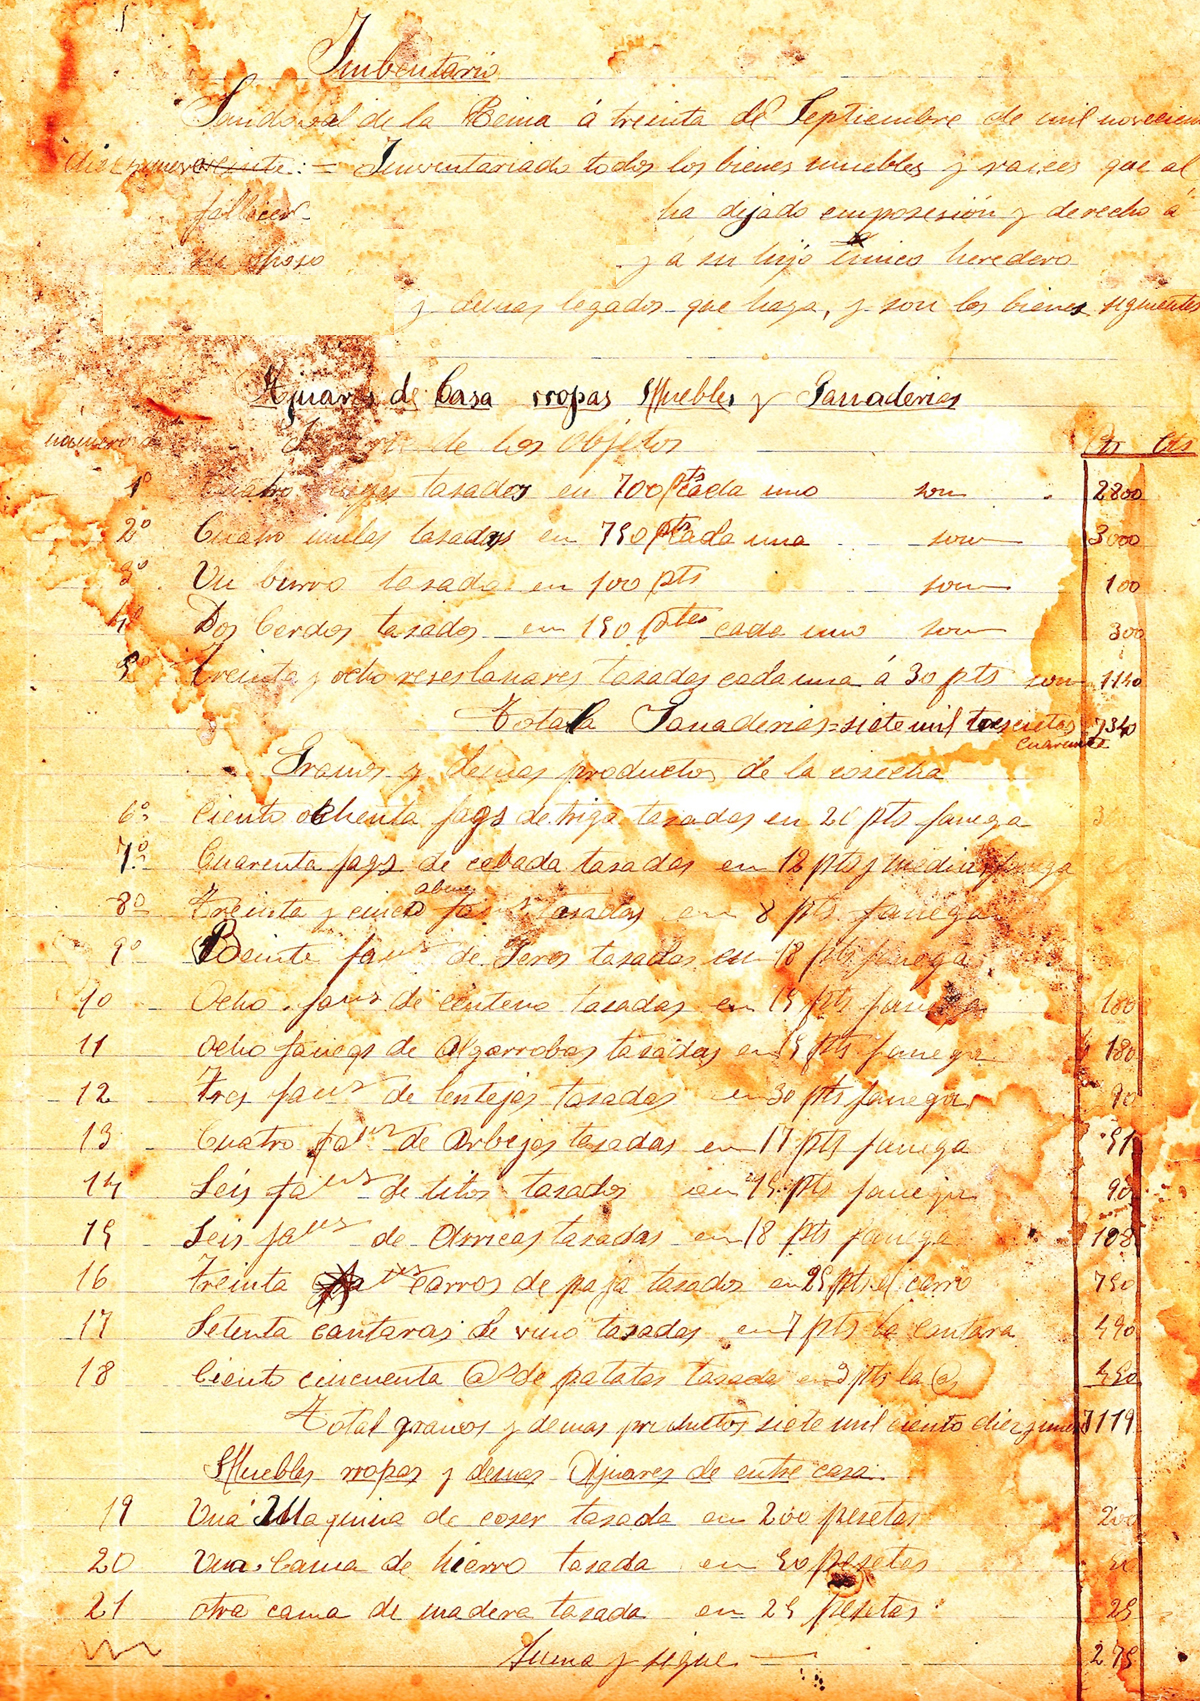 Imbentario
Sandoval de la Reina á treinta de Septiembre de mil novecien
diez nueve veinte := Inventariado todos los bienes muebles y raices que al
fallecer ha dejado emposesión y derecho á
su esposo y á su hijo único heredero
y demas legados que haya, y son los bienes siguientes
Ajuares de Casa rropas Muebles y Ganaderias
número de los Objetos Pts Cts
1º Cuatro tasados en 700 pts cada uno son 2800
2º Cuatro mulas tasadas en 750 pts cada una son 3000
3º Un burro tasado en 100 pts son 100
4º Dos Cerdos tasados en 150 ptas cada uno son 300
5º treinta y ocho reses lanares tasados cada una á 30 pts son 1140
Total Ganaderias = siete mil trescientas cuarenta 7340
Granos y demas productos de la cosecha
6º Ciento ochenta fags de trigo tasadas en 21 pts fanega
7º Cuarenta fags de cebada tasadas en 12 pts y media fanega
8º Treinta y cinco abena tasadas en 8 pts fanega
9º Beinte fans de Yeros tasadas en 18 pts fanega
10 Ocho fans de centeno tasadas en 15 pts fanega 180
11 Ocho fanegs de Algarrobas tasadas en 15 pts fanega 180
12 Tres fans de lentejas tasadas en 30 pts fanega 90
13 Cuatro fans de Arbejas tasadas en 17 pts fanega 51
14 Seis fans de titos tasados en 15 pts fanega 90
15 Seis fans de Arricas tasadas en 18 pts fanega 108
16 treinta carros de paja tasados en 25 pts el carro 750
17 Setenta cantaras de vino tasadas en 7 pts la Cantara 490
18 Ciento cincuenta @s de patatas tasada en 3 pts la @ 450
Total granos y demas productos siete mil ciento diez y nueve 7119
Muebles rropas y demas Ajuares de entre casa.
19 Una Maquina de coser tasada en 200 pesetas 200
20 Una Cama de hierro tasada en 50 pesetas 50
21 otra cama de madera tasada en 25 pesetas 25
Suma y sigue 275